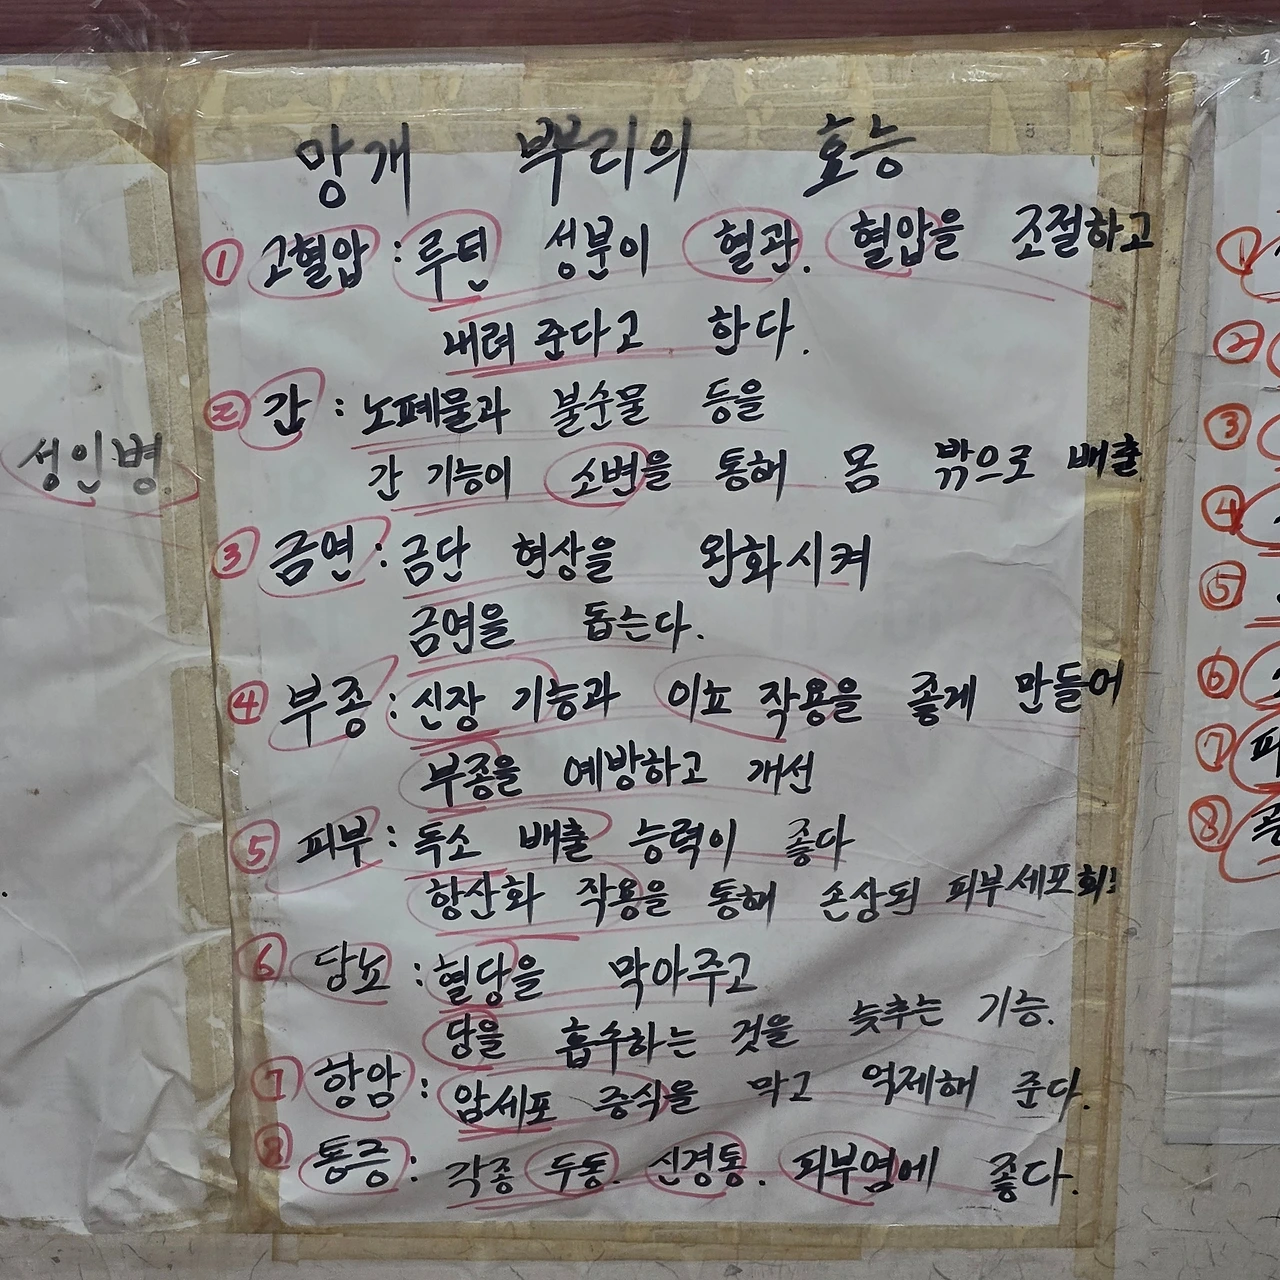 망개 뿌리의 효능
① 고혈압 : 루틴 성분이 혈관. 혈압을 조절하고
내려 준다고 한다.
② 간 : 노폐물과 불순물 등을
간 기능이 소변을 통해 몸 밖으로 배출
③ 금연 : 금단 현상을 완화시켜
금연을 돕는다.
④ 부종 : 신장 기능과 이뇨 작용을 좋게 만들어
부종을 예방하고 개선
⑤ 피부 : 독소 배출 능력이 좋다
항산화 작용을 통해 손상된 피부세포
⑥ 당뇨 : 혈당을 막아주고
당을 흡수하는 것을 늦추는 기능.
⑦ 항암 : 암세포 증식을 막고 억제해 준다.
⑧ 통증 : 각종 두통. 신경통. 피부염에 좋다.
성인병.
①
②
③
④
⑤
⑥
⑦ 피
⑧